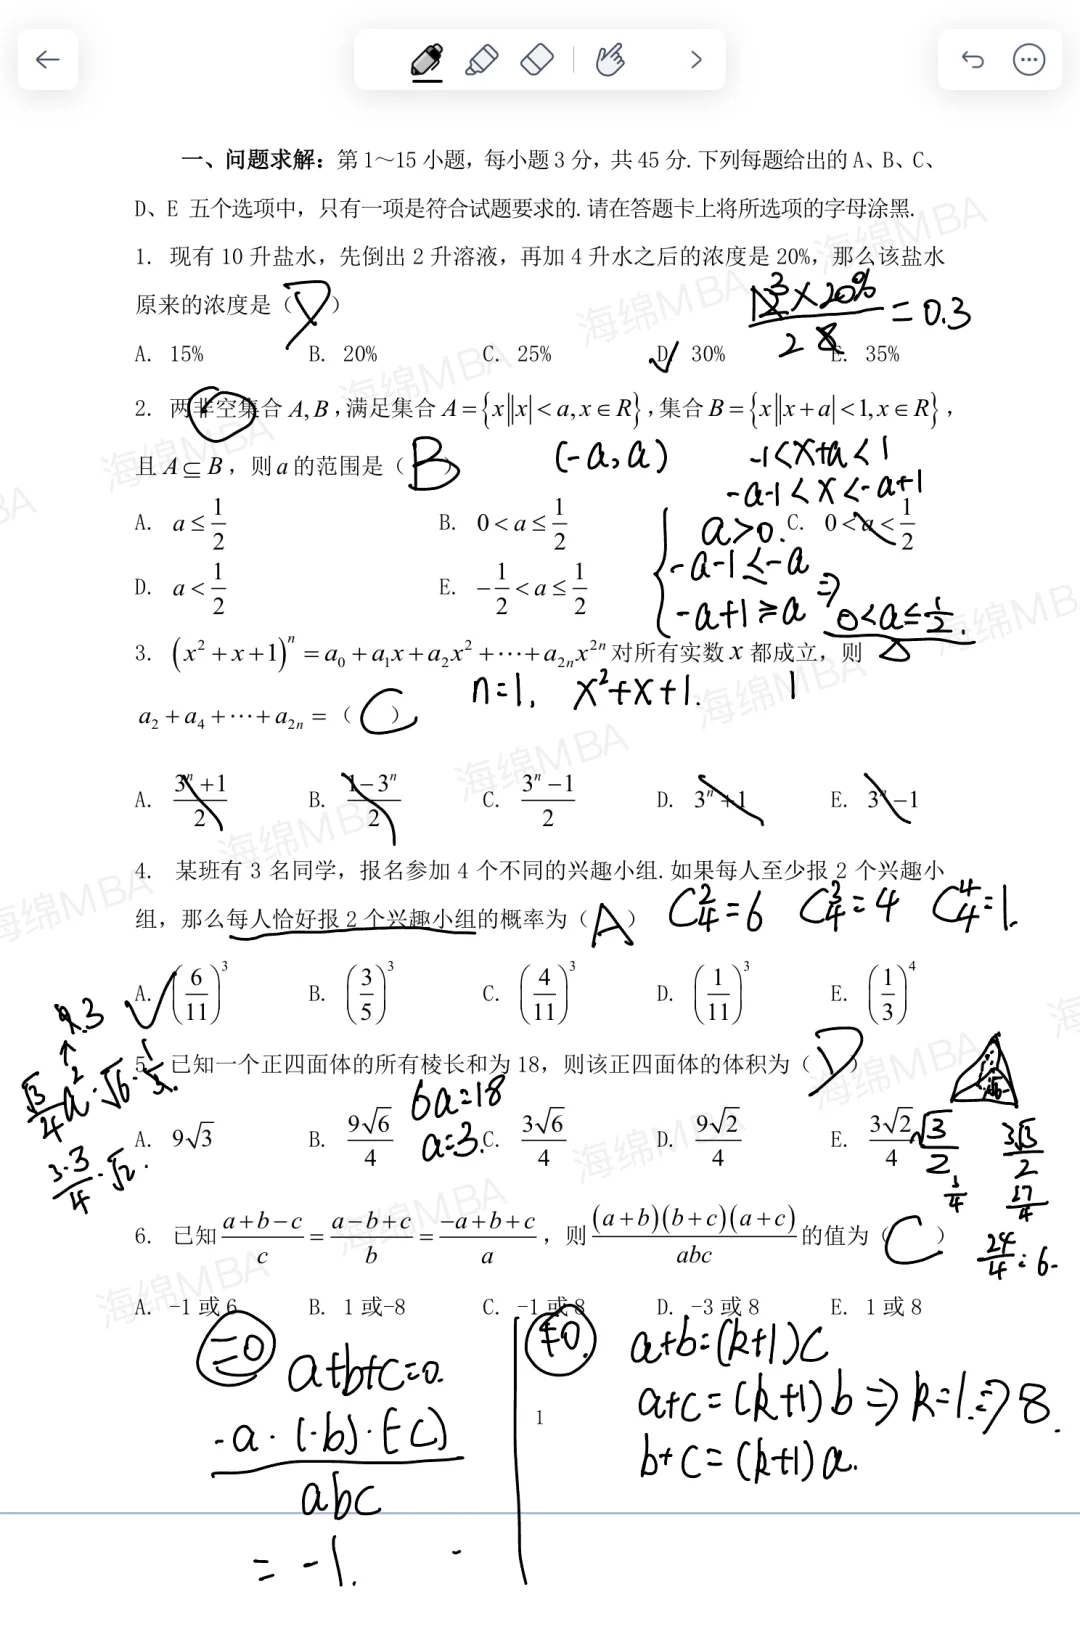 一、问题求解：第 1～15 小题，每小题 3 分，共 45 分.下列每题给出的 A、B、C、
D、E 五个选项中，只有一项是符合试题要求的.请在答题卡上将所选项的字母涂黑.
1. 现有 10 升盐水，先倒出 2 升溶液，再加 4 升水之后的浓度是 20%，那么该盐水
原来的浓度是（D）
12 3 × 20% / 2 8 = 0.3
A. 15% B. 20% C. 25% D. 30% E. 35%
2. 两非空集合 A,B,满足集合 A={x||x|<a,x∈R},集合 B={x||x+a|<1,x∈R},
且 A⊆B，则 a 的范围是（B
(-a,a) -1<x+a<1
-a-1<x<-a+1
A. a≤1/2 B. 0<a≤1/2 C. 0<a<1/2
a>0.
-a-1≤-a
D. a<1/2 E. -1/2<a≤1/2
-a+1≥a ⇒ 0<a≤1/2.
3. (x²+x+1)ⁿ=a₀+a₁x+a₂x²+⋯+a₂ₙx²ⁿ 对所有实数 x 都成立，则
n=1, x²+x+1. 1
a₂+a₄+⋯+a₂ₙ=（C）
A. (3ⁿ+1)/2 B. (1-3ⁿ)/2 C. (3ⁿ-1)/2 D. 3ⁿ+1 E. 3ⁿ-1
4. 某班有 3 名同学，报名参加 4 个不同的兴趣小组.如果每人至少报 2 个兴趣小
组，那么每人恰好报 2 个兴趣小组的概率为（A）
C₄²=6 C₄³=4 C₄⁴=1.
A. (6/11)³ B. (3/5)³ C. (4/11)³ D. (1/11)³ E. (1/3)⁴
5. 已知一个正四面体的所有棱长和为 18，则该正四面体的体积为（D）
√3/4 a²·√6·1/3.
3·3/4·√2.
6a=18
a=3.
A. 9√3 B. 9√6/4 C. 3√6/4 D. 9√2/4 E. 3√2/4
√3/2
3√3/2
27/4
24/4=6.
6. 已知 (a+b-c)/c=(a-b+c)/b=(-a+b+c)/a，则 (a+b)(b+c)(a+c)/abc 的值为（C）
A. -1 或 6 B. 1 或-8 C. -1 或 8 D. -3 或 8 E. 1 或 8
=0 a+b+c=0.
-a·(-b)·(-c)/abc
=-1.
≠0. a+b=(k+1)c
a+c=(k+1)b ⇒ k=1.⇒ 8.
b+c=(k+1)a.
1
海绵MBA